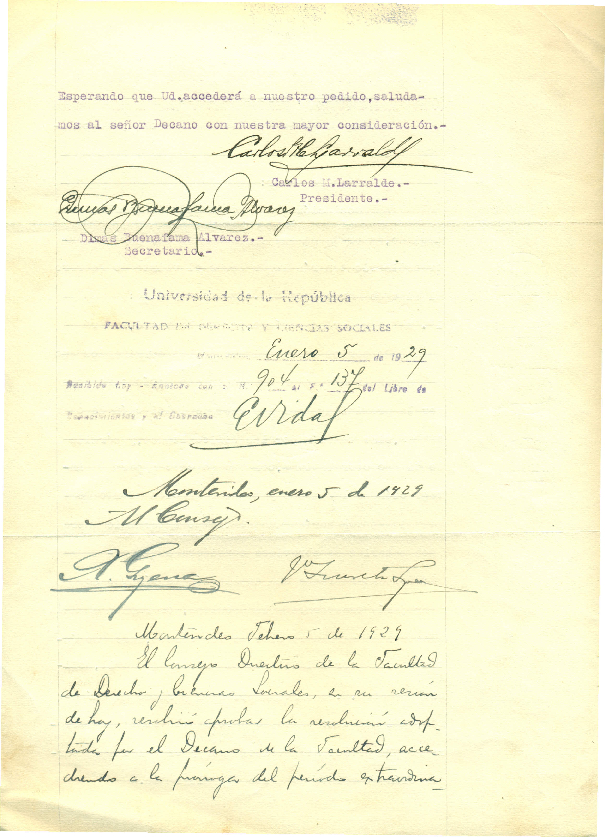 Esperando que Ud.accederá a nuestro pedido,saluda-
mos al señor Decano con nuestra mayor consideración.-
Carlos M Larralde
Carlos M.Larralde.-
Presidente.-
Dimas Buenafama Alvarez
Dimas Buenafama Alvarez.-
Secretario.-
Universidad de la República
FACULTAD DE DERECHO Y CIENCIAS SOCIALES
Enero 5 de 1929
Recibida hoy - Anotada con 904 al f. 137 del Libro de
EVidal
Montevideo, enero 5 de 1929
Al Consejo.
Montevideo Febrero 5 de 1929
El Consejo Directivo de la Facultad
de Derecho y Ciencias Sociales, en su sesión
de hoy, resolvió aprobar la resolución adop-
tada por el Decano de la Facultad, acce-
diendo a la prórroga del período extraordina-